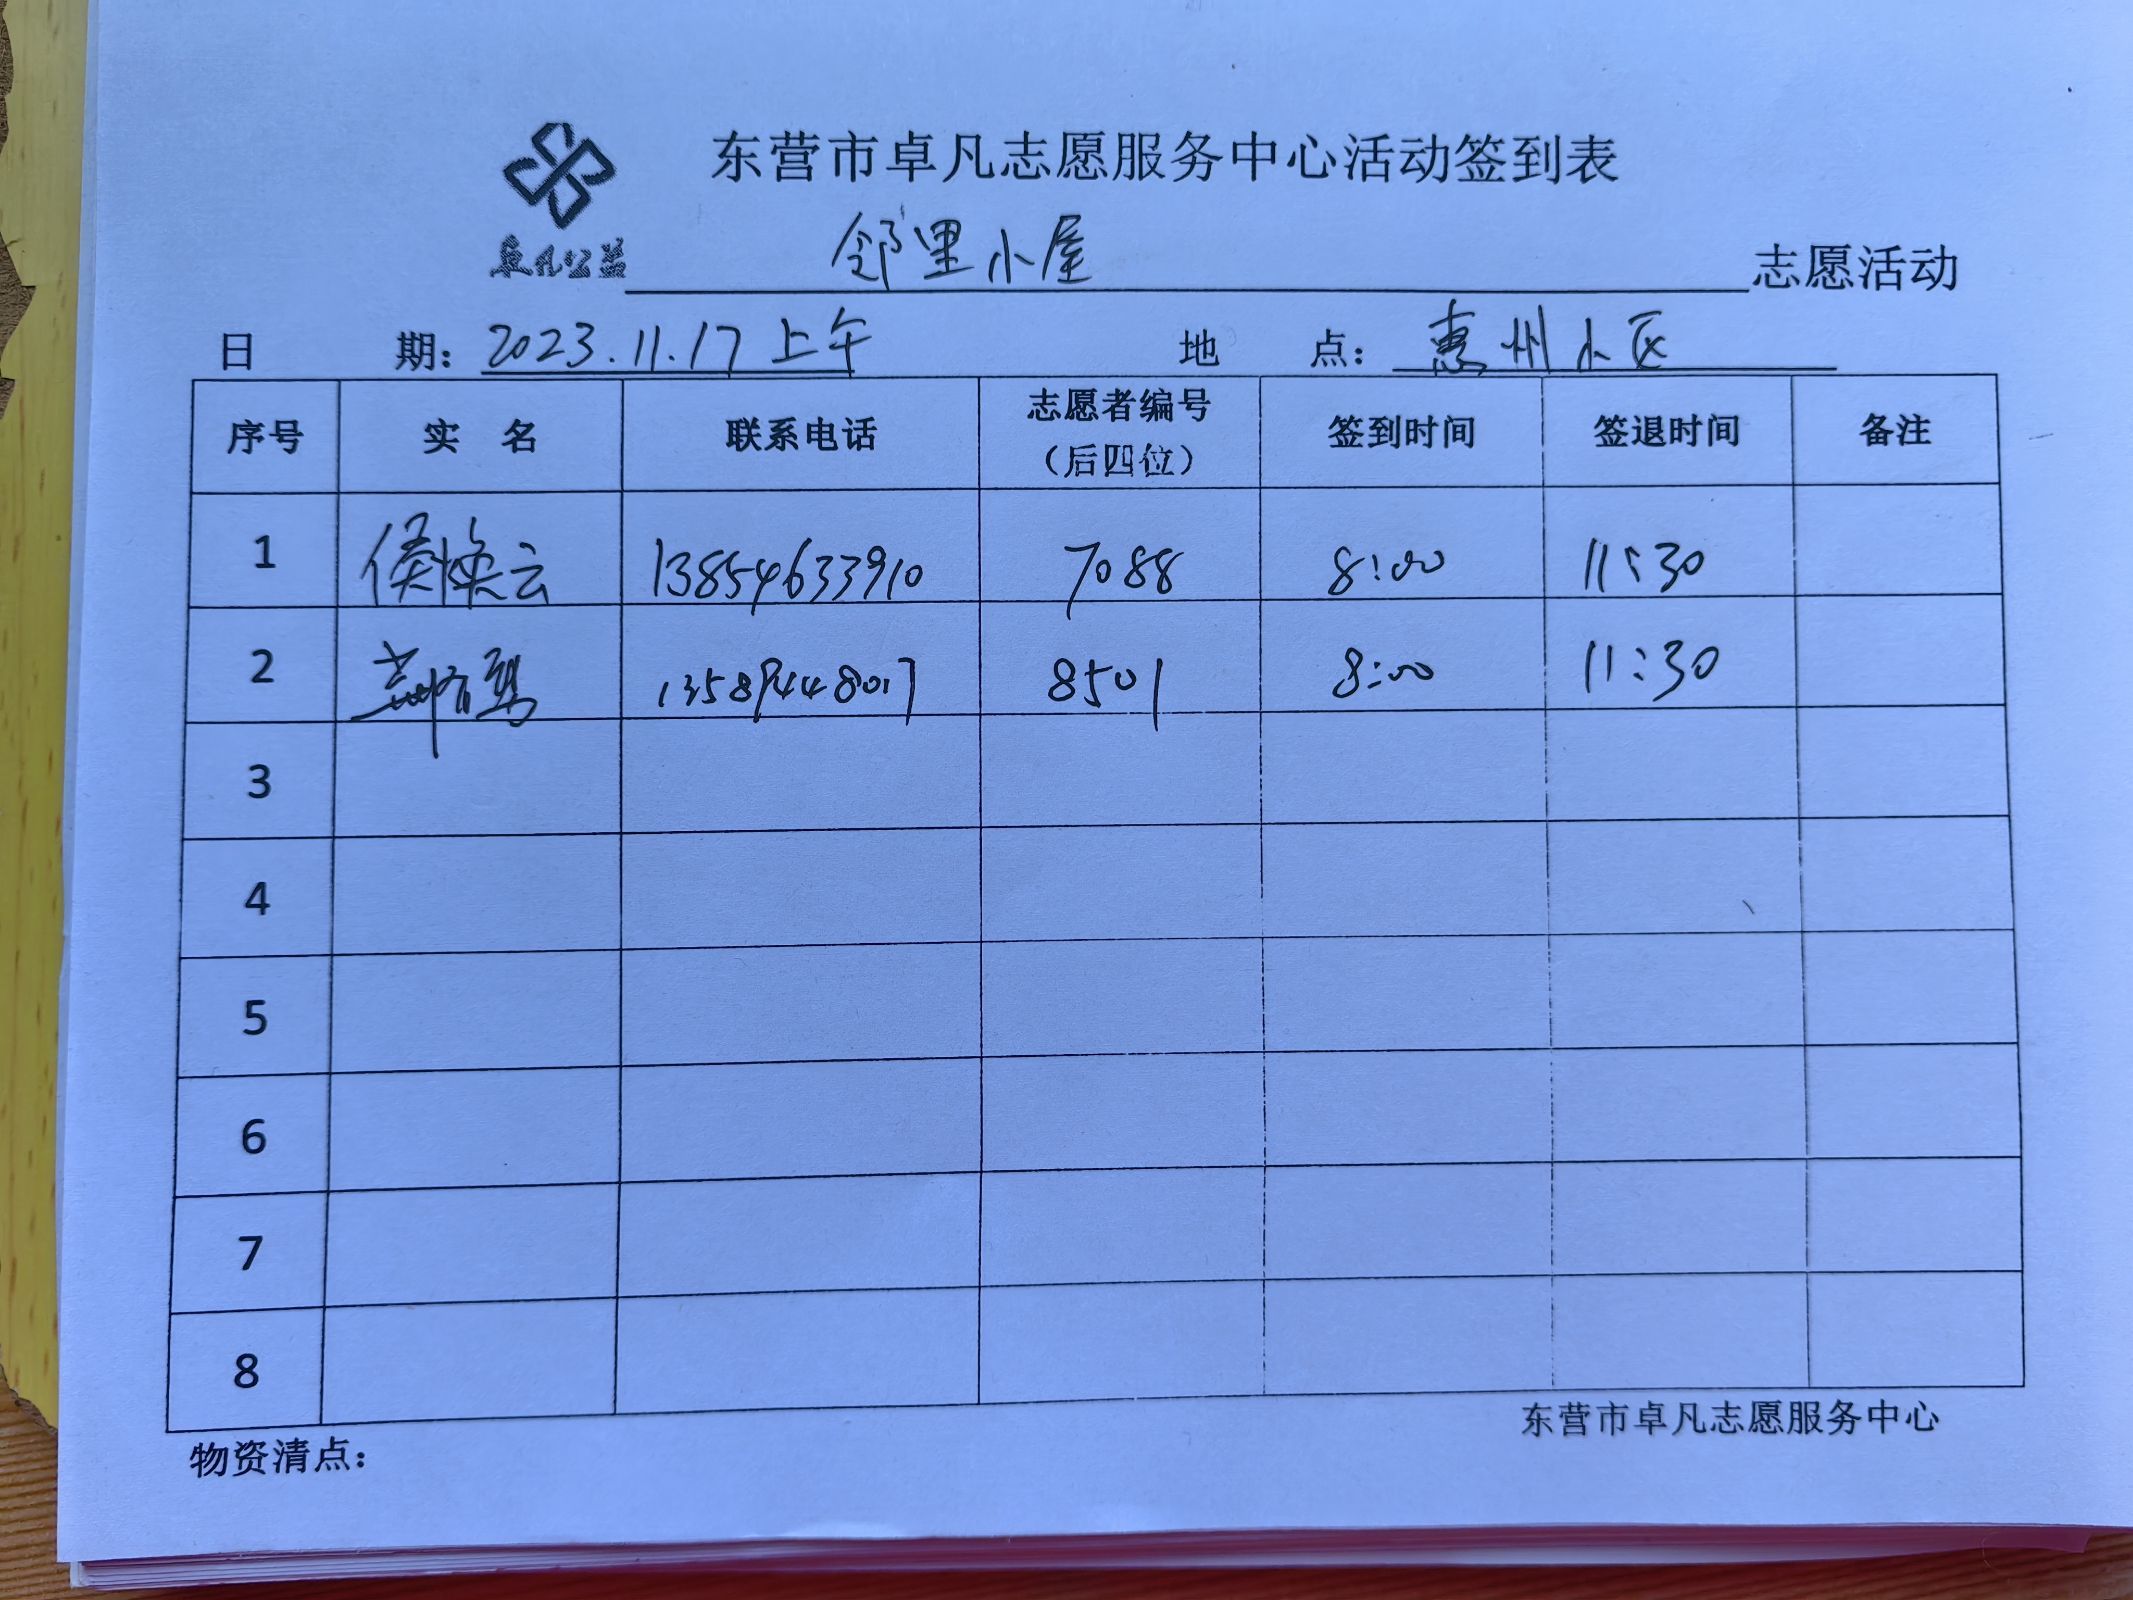 东营市卓凡志愿服务中心活动签到表
卓凡公益 邻里小屋 志愿活动
日 期: 2023.11.17 上午 地 点: 惠州小区
序号 实 名 联系电话 志愿者编号(后四位) 签到时间 签退时间 备注
1 侯焕云 13854633910 7088 8:00 11:30
2 13589448017 8501 8:00 11:30
3
4
5
6
7
8
东营市卓凡志愿服务中心
物资清点: